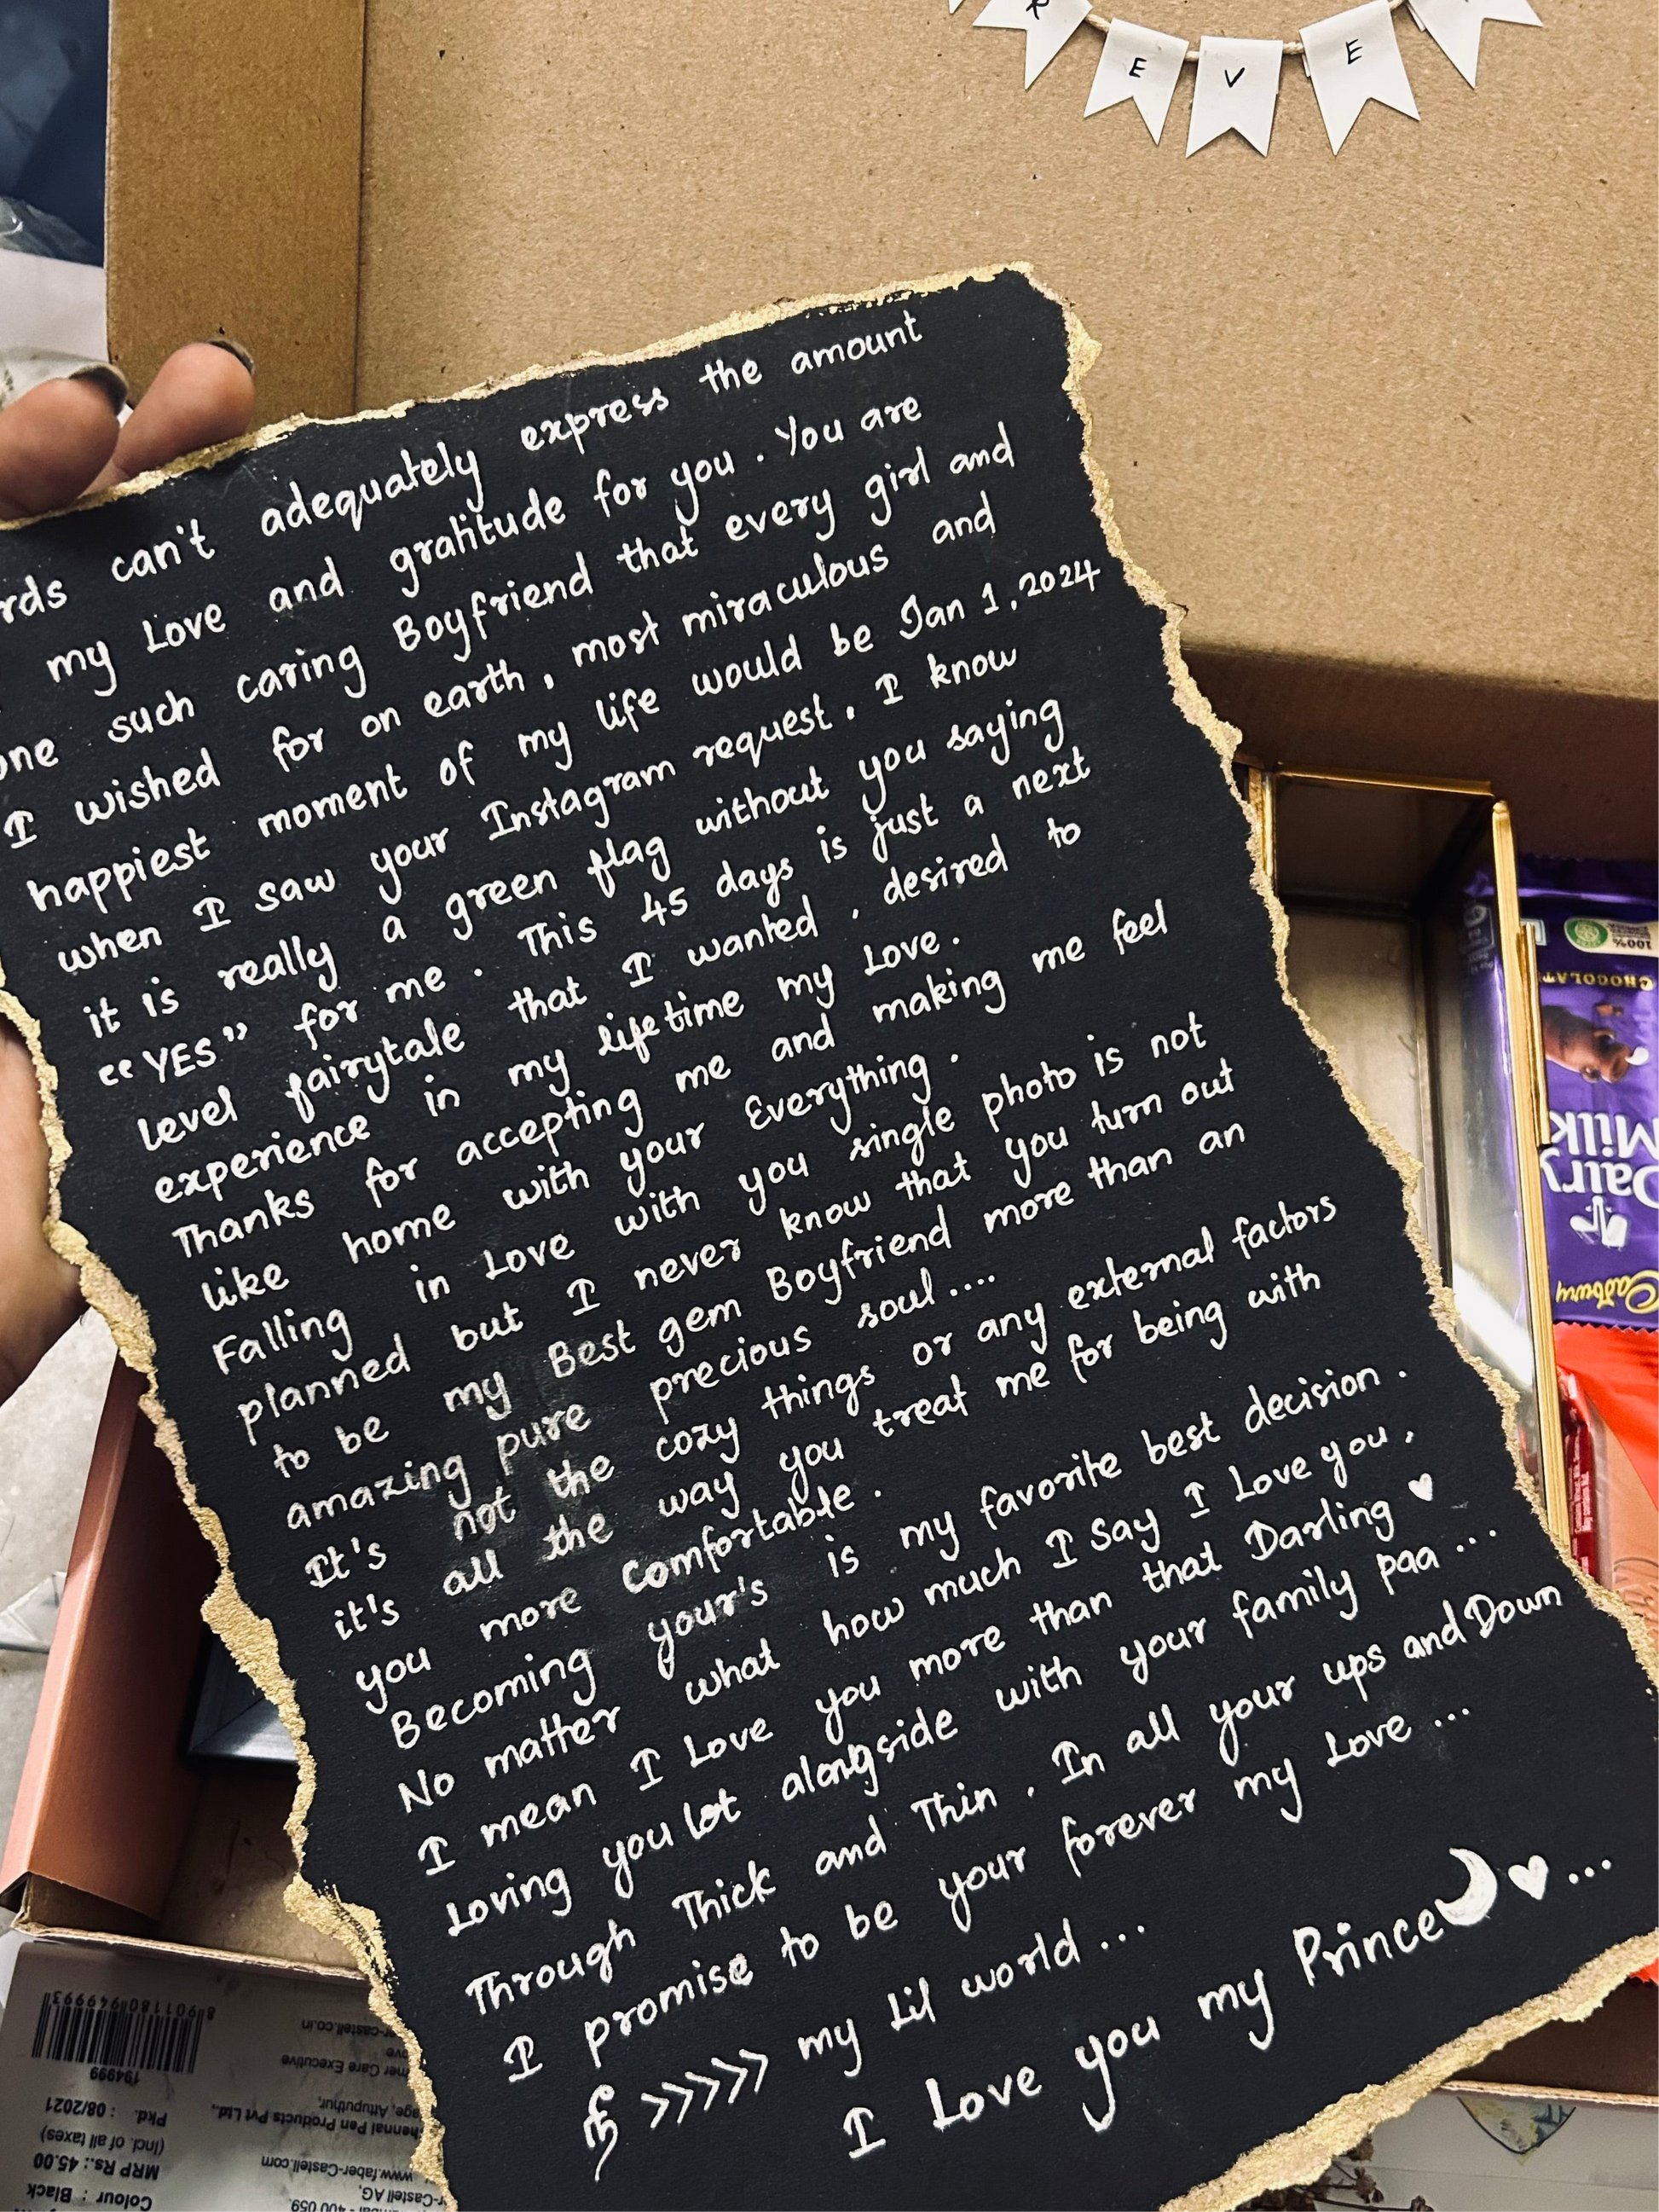 R E V E
rds can't adequately express the amount
my Love and gratitude for you . You are
one such caring Boyfriend that every girl and
I wished for on earth , most miraculous and
happiest moment of my life would be Jan 1, 2024
when I saw your Instagram request. I know
it is really a green flag without you saying
"YES" for me . This 45 days is just a next
level fairytale that I wanted , desired to
experience in my lifetime my Love .
Thanks for accepting me and making me feel
like home with your Everything .
Falling in Love with you single photo is not
planned but I never know that you turn out
to be my Best gem Boyfriend more than an
amazing pure precious soul....
It's not the cozy things or any external factors
it's all the way you treat me for being with
you more comfortable .
Becoming your's is my favorite best decision .
No matter what how much I Say I Love you ,
I mean I Love you more than that Darling ♥
Loving you lot alongside with your family paa ...
Through Thick and Thin , In all your ups and Down
I promise to be your forever my Love ...
நீ >>>>> my Lil world ...
I Love you my Prince🌙♥...
100%
CHOCOLAT
Dairy
Milk
Cadbury
8901180949993
194999
Pkd. : 08/2021
(Incl. of all taxes)
MRP Rs.: 45.00
Colour : Black
er-castell.co.in
ove
mer Care Executive
age, Attuputhur,
hennai Pen Products Pvt Ltd.,
www.faber-Castell.com
r-Castell AG,
bai - 400 059